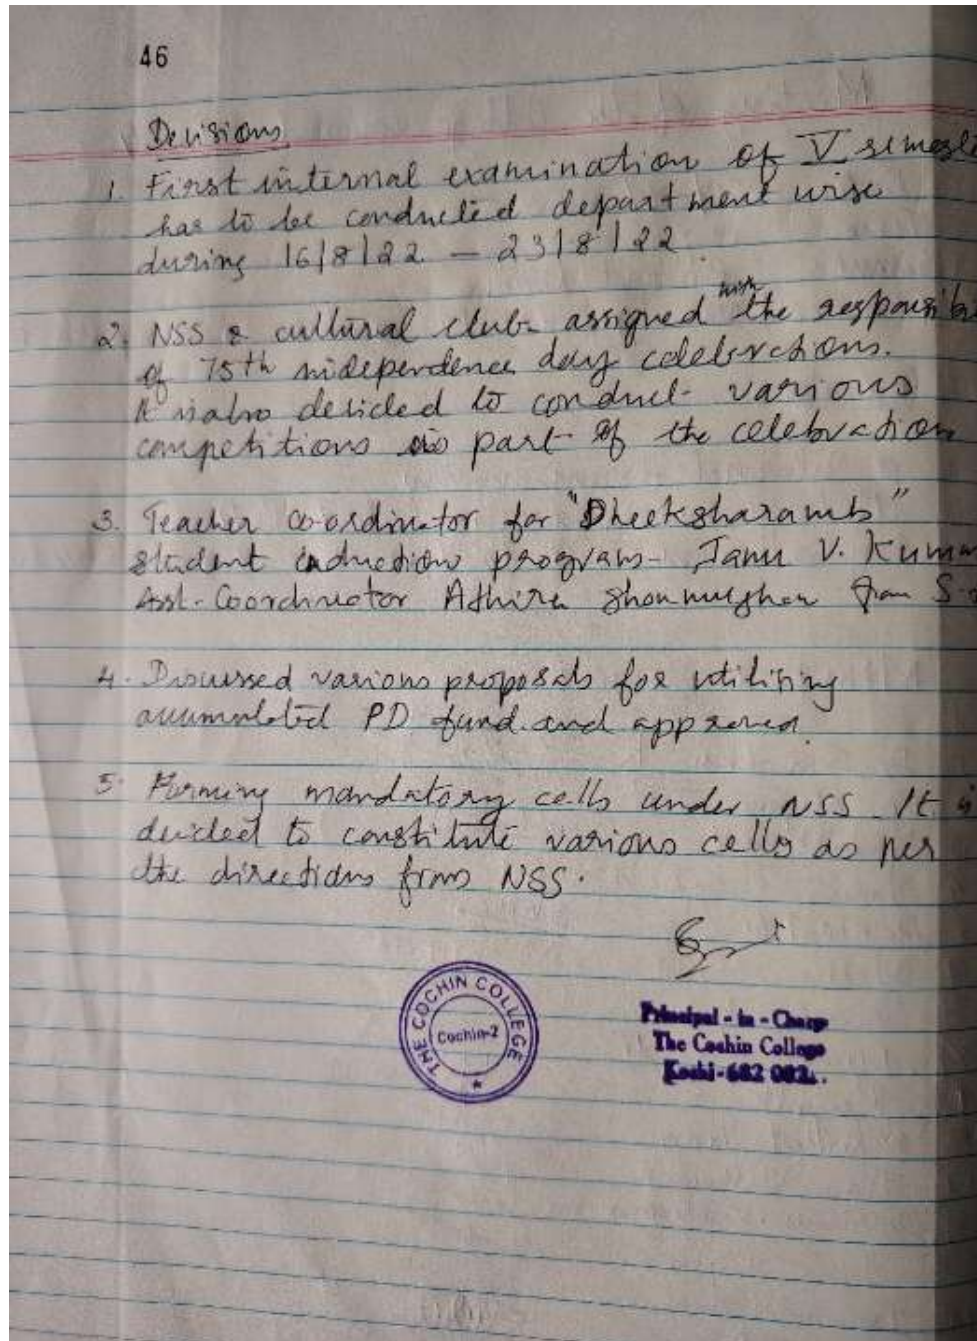 46
Decisions
1. First internal examination of V semest
has to be conducted department wise
during 16/8/22 – 23/8/22.
with
2. NSS & cultural club assigned the responsib
of 75th independence day celebrations.
It is also decided to conduct various
competitions as part of the celebration
3. Teacher co-ordinator for "Dheeksharamb"
student induction program - V. Kumar
Asst. Coordinator Athira from S.
4. Discussed various proposals for utilising
accumulated PD fund and approved.
5. Forming mandatory cells under NSS. It is
decided to constitute various cells as per
the directions from NSS.
THE COCHIN COLLEGE
Cochin-2
Principal - in - Charge
The Cochin College
Kochi - 682 002.